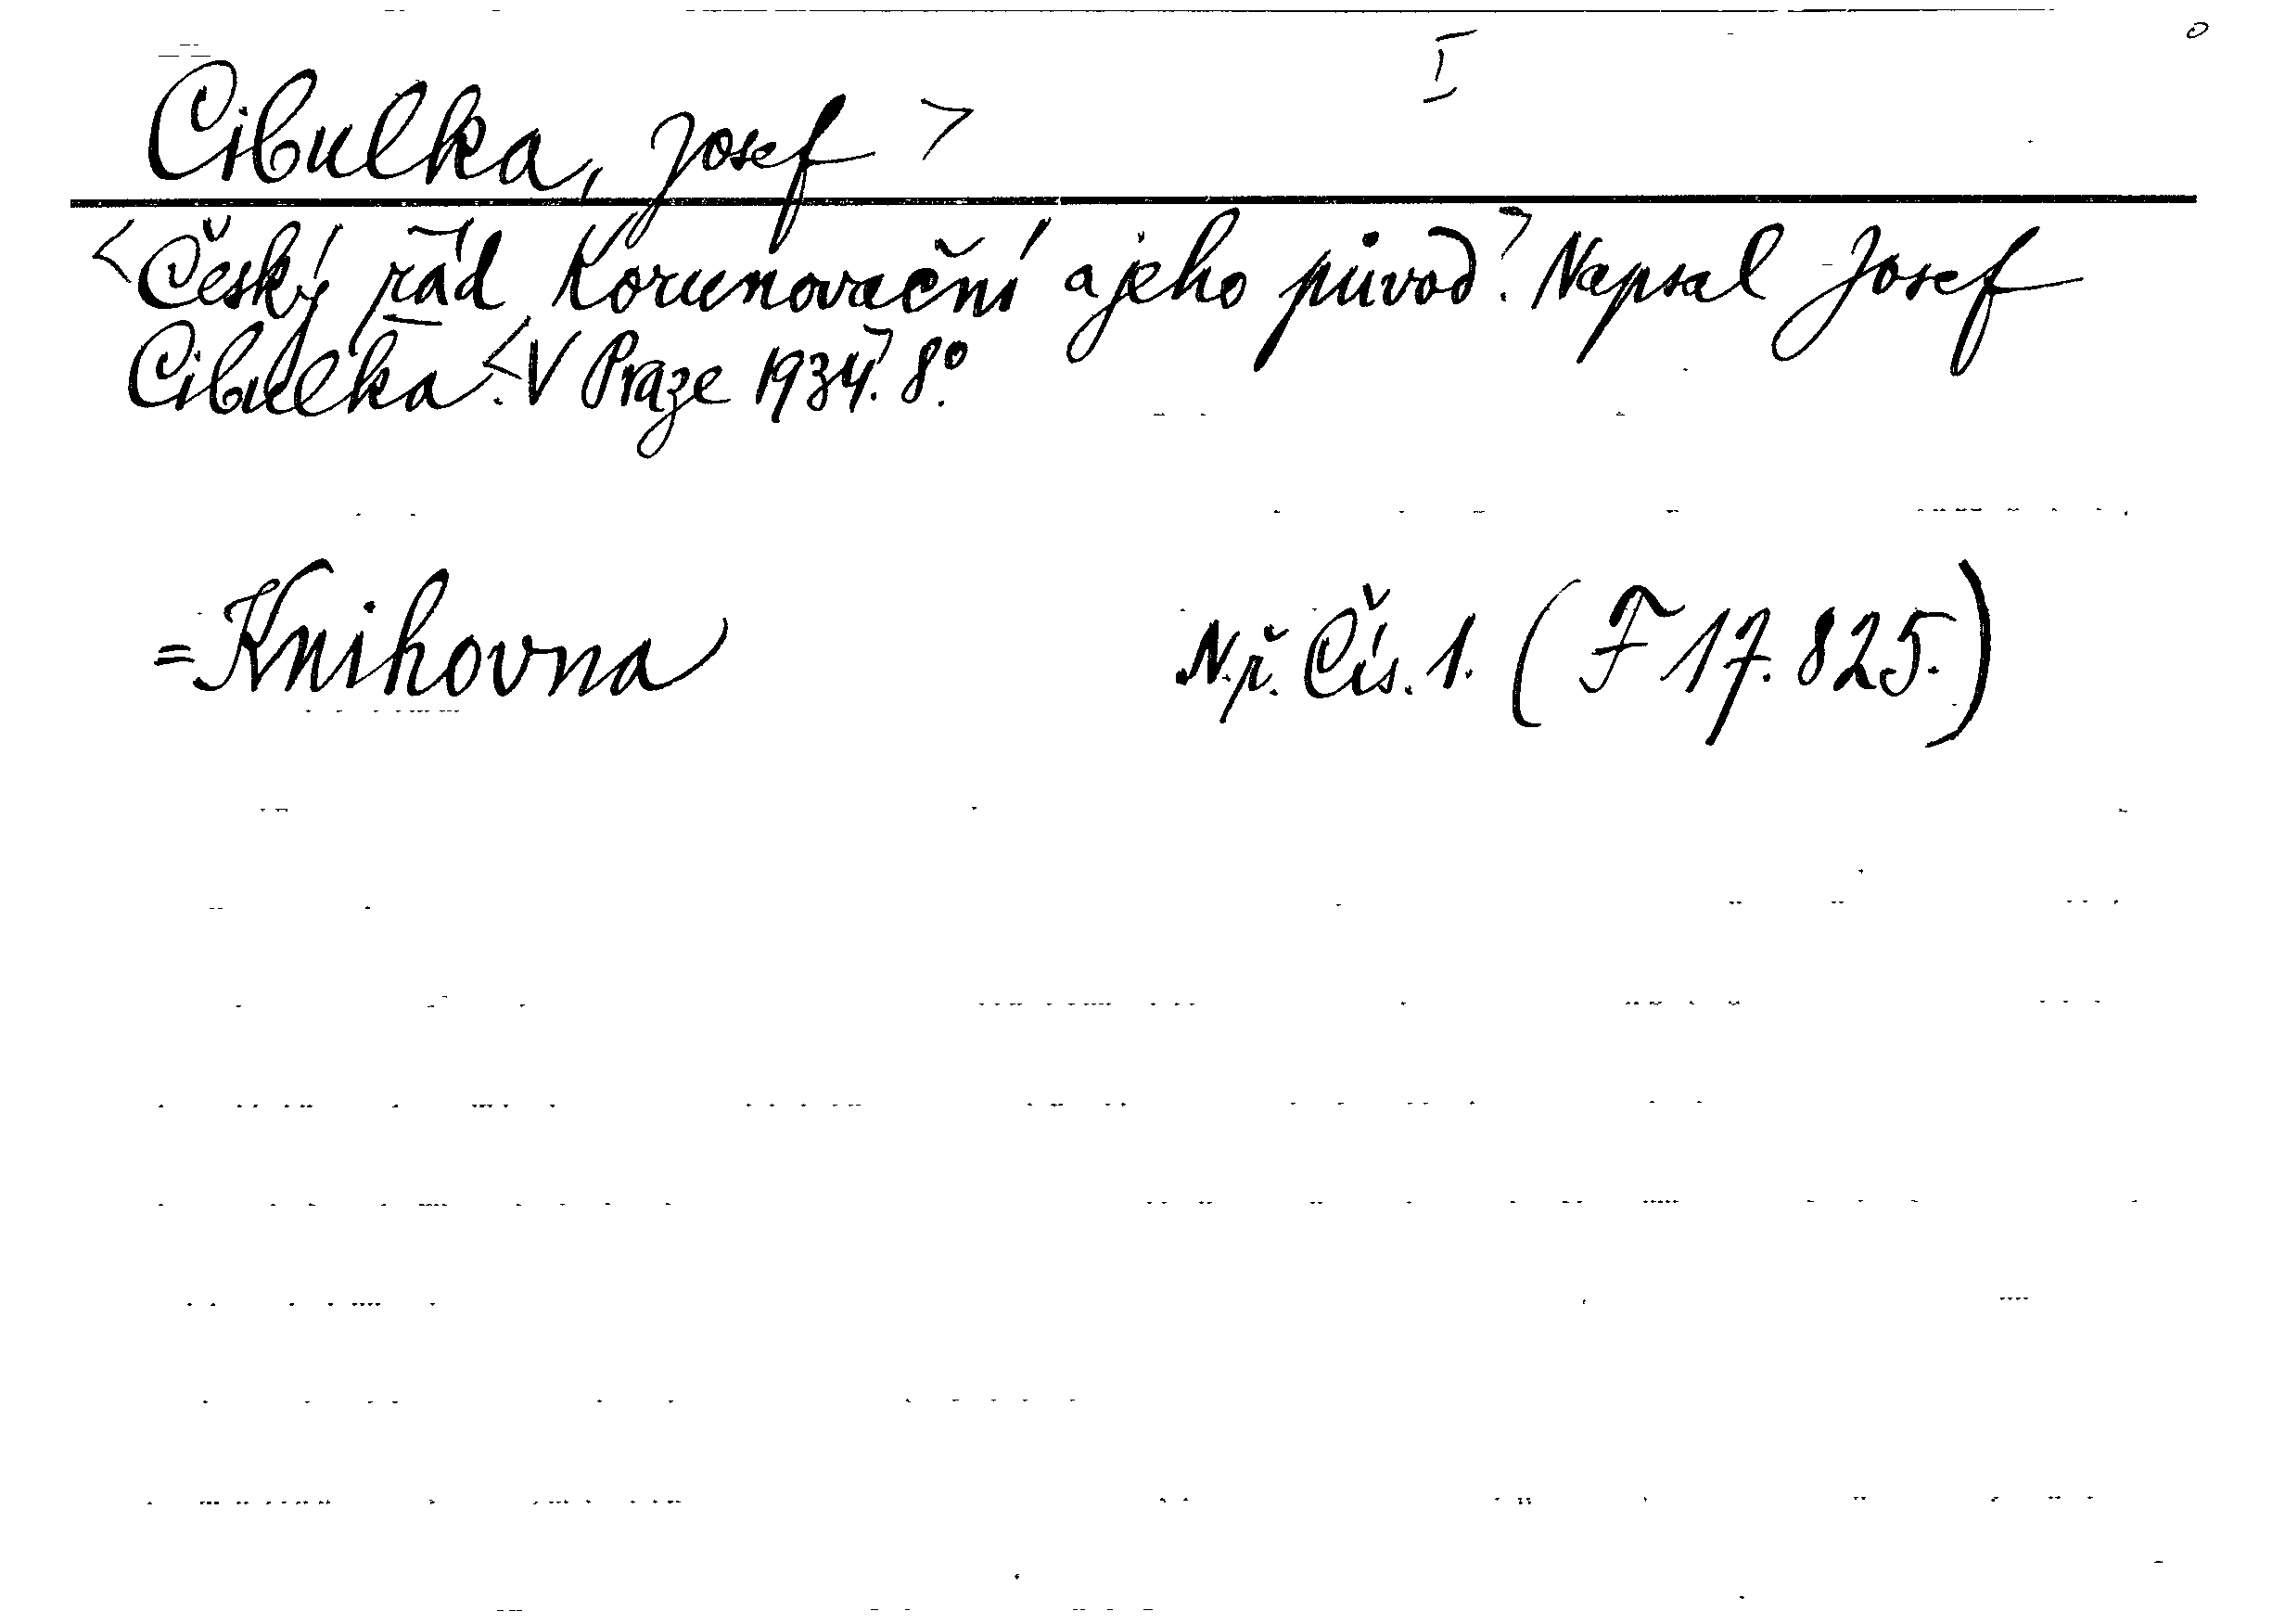 I
Cibulka, Josef >
<Český řád korunovační a jeho původ>. Napsal Josef
Cibulka. <V Praze 1934>. 8°.
=Knihovna N.ř. Čís. 1. (F 17.825.)